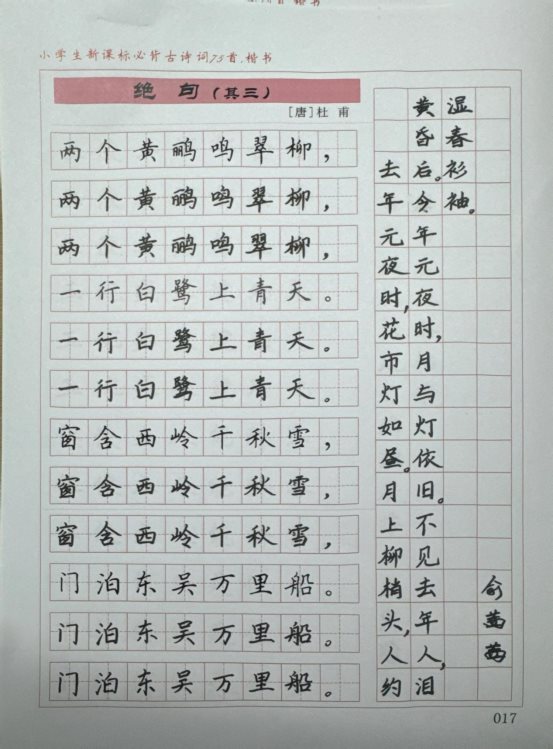 小学生新课标必背古诗词75首.楷书
绝句(其三)
[唐]杜甫
两个黄鹂鸣翠柳，
两个黄鹂鸣翠柳，
两个黄鹂鸣翠柳，
一行白鹭上青天。
一行白鹭上青天。
一行白鹭上青天。
窗含西岭千秋雪，
窗含西岭千秋雪，
窗含西岭千秋雪，
门泊东吴万里船。
门泊东吴万里船。
门泊东吴万里船。
去年元夜时，花市灯如昼。月上柳梢头，人约
黄昏后。今年元夜时，月与灯依旧。不见去年人，泪
湿春衫袖。
俞
017